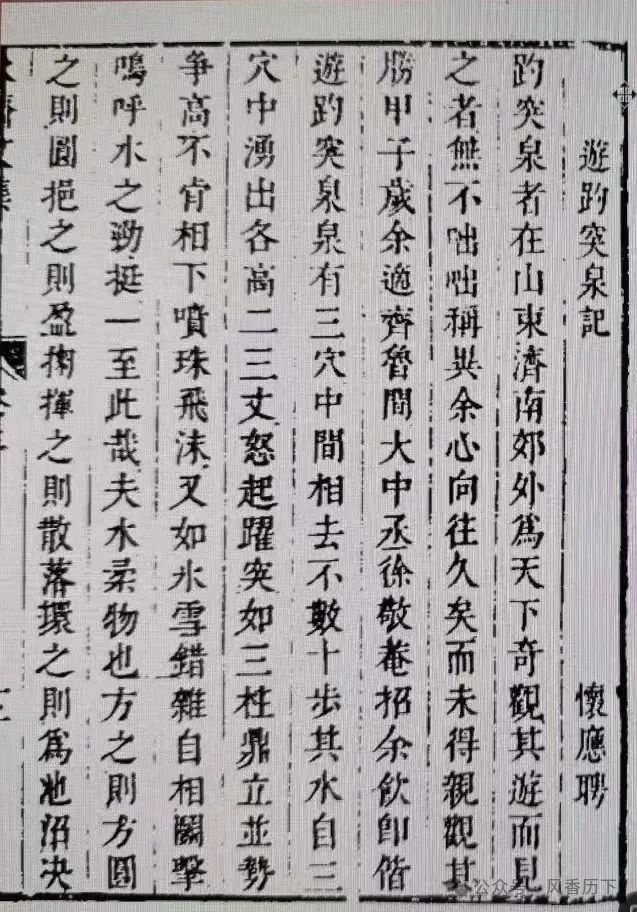 遊趵突泉記 懷應聘
趵突泉者在山東濟南郊外爲天下奇觀其遊而見
之者無不咄咄稱異余心向往久矣而未得親觀其
勝甲子歲余適齊魯間大中丞徐敬菴招余飲即偕
遊趵突泉泉有三穴中間相去不數十步其水自三
穴中湧出各高二三丈怒起躍突如三柱鼎立並勢
争高不肯相下噴珠飛沫又如氷雪錯雜自相鬭擊
嗚呼水之勁挺一至此哉夫水柔物也方之則方圓
之則圓挹之則盈掬揮之則散落環之則爲池沼決
公众号 风香历下